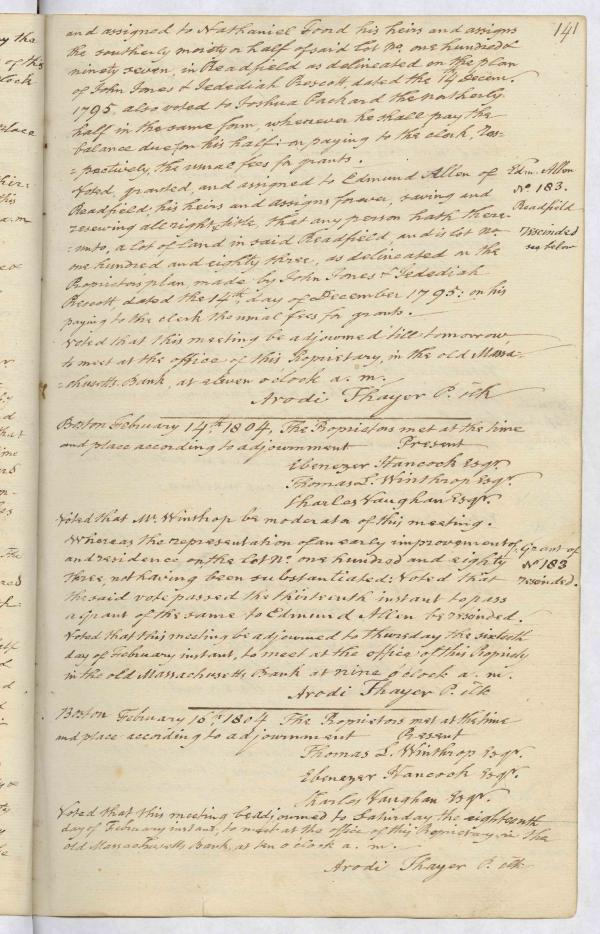 141
and assigned to Nathaniel Foord his heirs and assigns
the southerly moiety or half of said lot No. one hundred &
ninety seven, in Readfield as delineated on the plan
of John Jones & Jedediah Prescott, dated the 14 Decem.
1795. also voted to Joshua Packard the northerly
half in the same form, whenever he shall pay the
balance due for his half: on paying to the clerk, res-
=pectively, the usual fees for grants.
Voted, granted, and assigned to Edmund Allen of
Readfield, his heirs and assigns forever, saving and
reserving all right & title, that any person hath there-
=unto, a lot of land in said Readfield, and is lot No.
one hundred and eighty three, as delineated on the
Proprietors plan, made by John Jones & Jedediah
Prescott, dated the 14th. day of December 1795: on his
paying to the clerk the usual fees for grants.
Edm. Allen
No. 183.
Readfield
rescinded
see below
Voted that this meeting be adjourned till tomorrow,
to meet at the office of this Propriety, in the old Massa-
=chusetts Bank, at eleven o'clock a. m.
Arodi Thayer P. Clk
Boston February 14th. 1804, The Proprietors met at the time
and place according to adjournment Present
Ebenezer Hancock Esqr.
Thomas L. Winthrop Esqr.
Charles Vaughan Esqr.
Voted that Mr. Winthrop be moderator of this meeting.
Whereas the representation of an early improvement of,
and residence on the lot No. one hundred and eighty
three, not having been substantiated: Voted that
the said vote passed the thirteenth instant to pass
a Grant of the same to Edmund Allen be rescinded.
Grant of
No 183
rescinded.
Voted that this meeting be adjourned to Thursday the sixteenth
day of February instant, to meet at the office of this Propriety
in the old Massachusetts Bank at nine o'clock a. m.
Arodi Thayer P. Clk
Boston February 16th. 1804 The Proprietors met at the time
and place according to adjournment Present
Thomas L. Winthrop Esqr.
Ebenezer Hancock Esqr.
Charles Vaughan Esqr.
Voted that this meeting be adjourned to Saturday the eighteenth
day of February instant, to meet at the office of this Proprietary, in the
old Massachusetts Bank, at ten o'clock a. m.
Arodi Thayer P. Clk